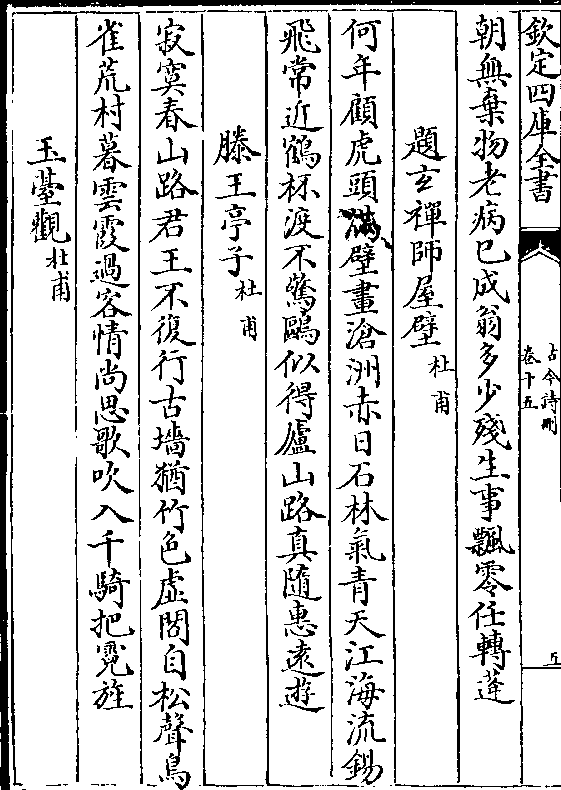 欽定四庫全書
古今詩刪
卷十五
五
朝無棄物老病已成翁多少殘生事飄零任轉蓬
題玄禪師屋壁杜甫
何年顧虎頭滿壁畫滄洲赤日石林氣青天江海流錫
飛常近鶴杯渡不驚鷗似得廬山路真隨惠逺逰
滕王亭子杜甫
寂寞春山路君王不復行古墻猶竹色虛閣自松聲鳥
雀荒村暮雲霞過客情尚思歌吹入千騎把霓旌
玉臺觀杜甫